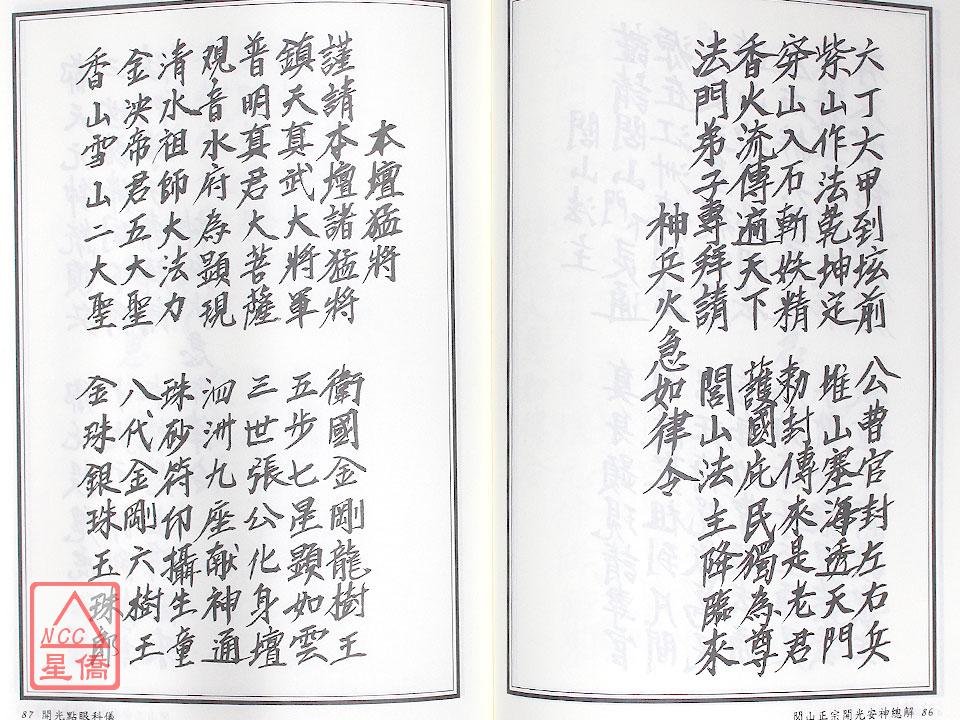 六丁大甲到坛前　公曹官封左右兵
紫山作法乾坤定　堆山塞海透天門
穿山入石斬妖精　勅封傳來是老君
香火流傳遍天下　護國庇民獨為尊
法門弟子專拜請　閭山法主降臨來
神兵火急如律令
閭山正宗開光安神總解 86
本壇猛將
謹請本壇諸猛將　衛國金剛龍樹王
鎮天真武大將軍　五步七星顯如雲
普明真君大菩薩　三世張公化身壇
观音水府為顯現　泗洲九座献神通
清水祖師大法力　珠砂符仰攝生童
金泱帝君五大聖　八代金剛六樹王
香山雪山二大聖　金珠銀珠玉珠郎
87 開光點眼科儀
NCC
星僑